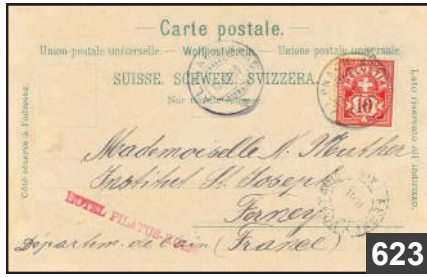 Carte postale.
Union postale universelle. — Weltpostverein. — Unione postale universale.
SUISSE. SCHWEIZ. SVIZZERA.
Nur für die Adresse.
Côté réservé à l'adresse.
Lato riservato all'indirizzo.
HELVETIA
10
Mademoiselle
Institut St. Joseph
HOTEL PILATUS-
Ferney
Départem. de l'Ain (France)
623